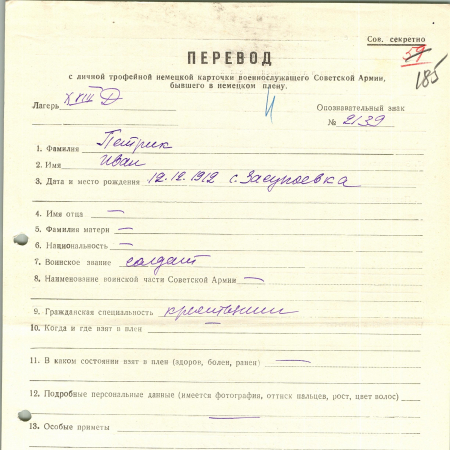 Сов. секретно
59
185
ПЕРЕВОД
с личной трофейной немецкой карточки военнослужащего Советской Армии,
бывшего в немецком плену.
Лагерь XVIII D
Опознавательный знак
№ 2139
1. Фамилия Петрик
2. Имя Иван
3. Дата и место рождения 12.12.1912 с. Засупоевка
4. Имя отца —
5. Фамилия матери —
6. Национальность —
7. Воинское звание солдат
8. Наименование воинской части Советской Армии —
9. Гражданская специальность крестьянин
10. Когда и где взят в плен —
11. В каком состоянии взят в плен (здоров, болен, ранен) —
12. Подробные персональные данные (имеется фотография, оттиск пальцев, рост, цвет волос)
—
13. Особые приметы